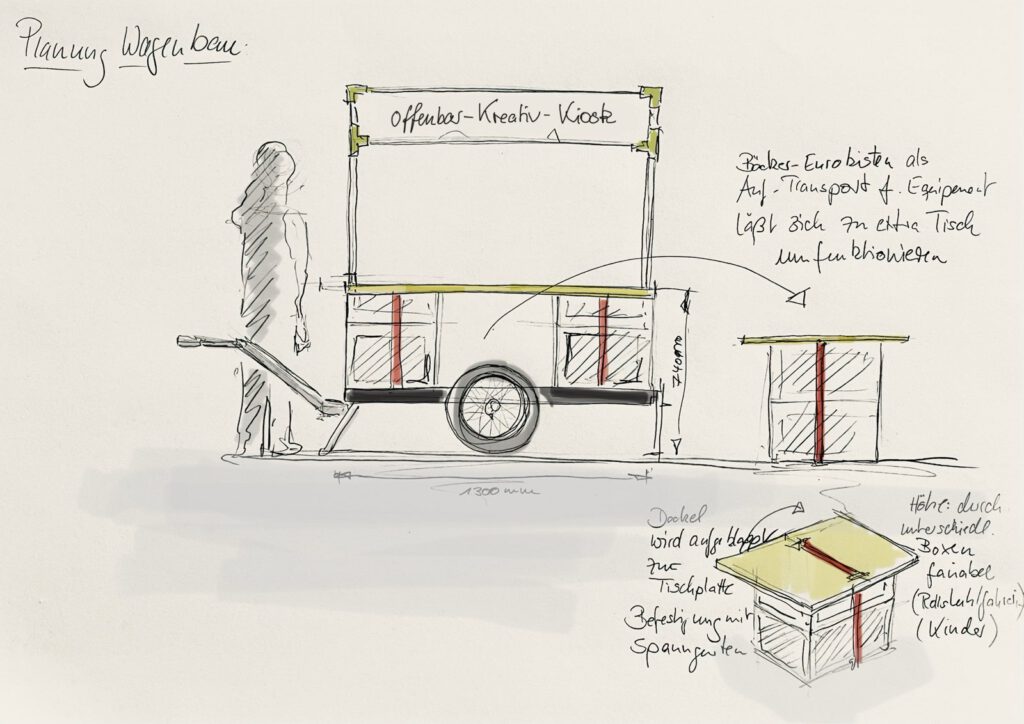 Planung Wagenbau.
Offenbar-Kreativ-Kiosk
Bäcker-Eurokisten als
Auf-Transport f. Equipment
läßt sich zu extra Tisch
umfunktionieren
740mm
1300mm
Deckel
wird aufgeklappt
zur
Tischplatte
Befestigung mit
Spanngurten
Höhe: durch
unterschiedl.
Boxen
variabel
(Rollstuhlfahrer,
(Kinder)